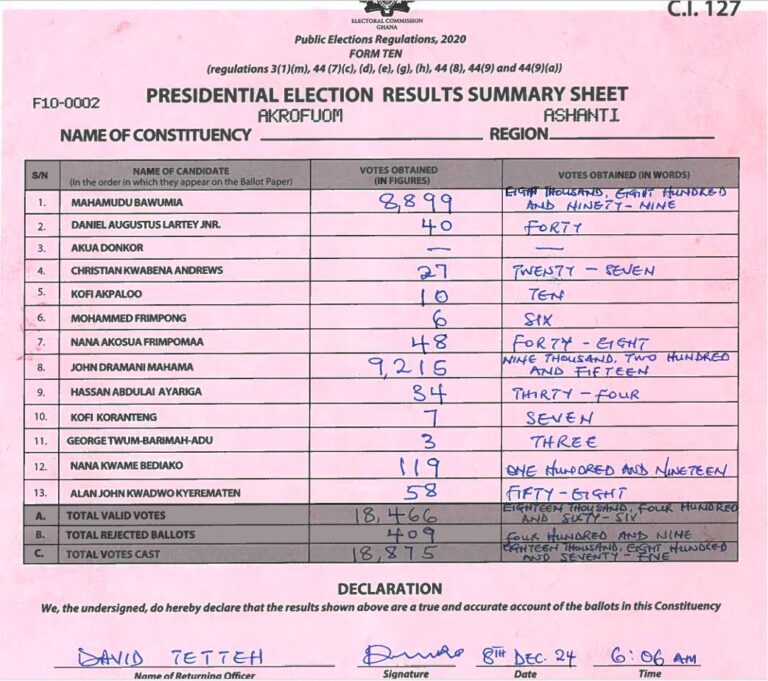 C.I. 127
ELECTORAL COMMISSION
GHANA
Public Elections Regulations, 2020
FORM TEN
(regulations 3(1)(m), 44 (7)(c), (d), (e), (g), (h), 44 (8), 44(9) and 44(9)(a))
F10-0002 PRESIDENTIAL ELECTION RESULTS SUMMARY SHEET
AKROFUOM ASHANTI
NAME OF CONSTITUENCY REGION
S/N NAME OF CANDIDATE (In the order in which they appear on the Ballot Paper) VOTES OBTAINED (IN FIGURES) VOTES OBTAINED (IN WORDS)
1. MAHAMUDU BAWUMIA 8,899 EIGHT THOUSAND, EIGHT HUNDRED AND NINETY-NINE
2. DANIEL AUGUSTUS LARTEY JNR. 40 FORTY
3. AKUA DONKOR — —
4. CHRISTIAN KWABENA ANDREWS 27 TWENTY-SEVEN
5. KOFI AKPALOO 10 TEN
6. MOHAMMED FRIMPONG 6 SIX
7. NANA AKOSUA FRIMPOMAA 48 FORTY-EIGHT
8. JOHN DRAMANI MAHAMA 9,215 NINE THOUSAND, TWO HUNDRED AND FIFTEEN
9. HASSAN ABDULAI AYARIGA 34 THIRTY-FOUR
10. KOFI KORANTENG 7 SEVEN
11. GEORGE TWUM-BARIMAH-ADU 3 THREE
12. NANA KWAME BEDIAKO 119 ONE HUNDRED AND NINETEEN
13. ALAN JOHN KWADWO KYEREMATEN 58 FIFTY-EIGHT
A. TOTAL VALID VOTES 18,466 EIGHTEEN THOUSAND, FOUR HUNDRED AND SIXTY-SIX
B. TOTAL REJECTED BALLOTS 409 FOUR HUNDRED AND NINE
C. TOTAL VOTES CAST 18,875 EIGHTEEN THOUSAND, EIGHT HUNDRED AND SEVENTY-FIVE
DECLARATION
We, the undersigned, do hereby declare that the results shown above are a true and accurate account of the ballots in this Constituency
DAVID TETTEH 8TH DEC. 24 6:06 AM
Name of Returning Officer Signature Date Time